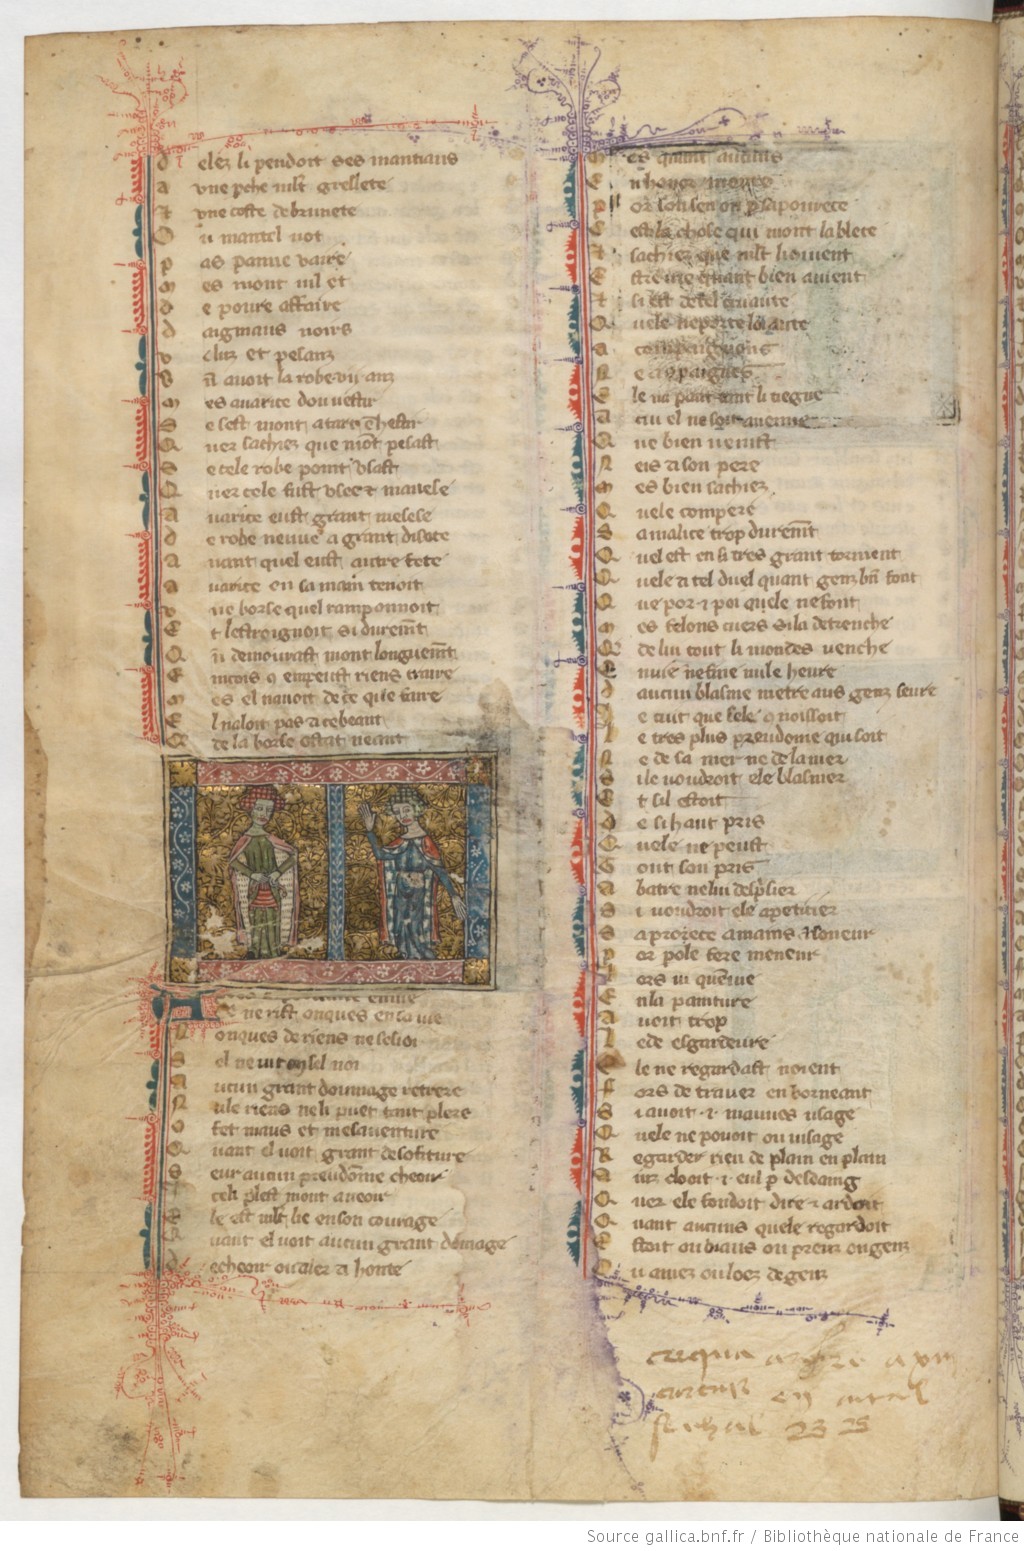 d elez li pendoit ses mantiaus
a vne pche mlt grellete
t vne coste de brunete
O u mantel not
p as panne vaire
m es mont uil et
d e poure affaire
d aigniaus noirs
v eluz et pesanz
B n auoit la robe .vii. anz
m es auarice dou uestir
S e sest mont a tart
Q uer sachiez que mot pesast
S e cele robe point vsast
Q uer cele fust vsee et mauese
A uarice eust grant mesese
d e robe neuue a grant disete
A uant quel eust autre fete
a uarice en sa main tenoit
v ne borse quel
E t lestreignoit si durement
Q n demourast mont longuement
E incois q empeust riens traire
m es el nauoit de ce que faire
E l naloit pas a cebeant
Q de la borse ostat neant
enuie
ne rist onques en sa uie
N onques de riens ne sesioi
S el ne uit ou sel noi
A ucun grant doumage retrere
N ule riens ne li puet tant plere
O fet maus et mesauenture
Q uant el uoit grant desofiture
S eur aucun preudome cheoir
celi plest mont aueoir
E le est mlt lie en son courage
uant el uoit aucun grant domage
d echeoir ou aler a honte
es quant aucuns
E n honor monte
p
C est la chose qui mont la blece
t sachiez que mlt li conuient
E stre iree quant bien auient
t si est de tel cruaute
Q uele ne porte loiaute
a compaignons
N e a cpaignes
E le na
a cui el ne soit anemie
Q ue bien uenist
N eis a son pere
m es bien sachiez
Q uele compere
S a malice trop durement
Q uel est en si tres grant torment
Q uele a tel duel quant genz bn font
Q ue por .i. poi quele ne font
m es felons cuers si la detrenche
Q de lui tout li mondes uenche
E nuie ne fine nule heure
d aucun blasme metre aus genz seure
J e cuit que sele q noissoit
L e tres plus preudome qui soit
N e de sa mer ne de la mer
S i le uoudroit ele blasmer
E t sil estoit
d e si haut pris
Q uele ne peust
T out son pris
a batre ne lui desprisier
S i uoudroit ele apeticier
S a proece a mains et soneur
p or pole fere meneur
L ors ui quenuie
E n la painture
A uoit trop
L ede esgardeure
E le ne regardast noient
F ors de trauer en borneant
S i auoit .i. mauues usage
Q uele ne pouoit ou uisage
R egarder rien de plain en plain
A inz clooit .i. eul p desdaing
Q uer ele fondoit dire et ardoit
Q uant aucuns quele regardoit
E stoit ou biaus ou preuz ou genz
O u amez ou loez de genz
23 25
Source gallica.bnf.fr / Bibliothèque nationale de France